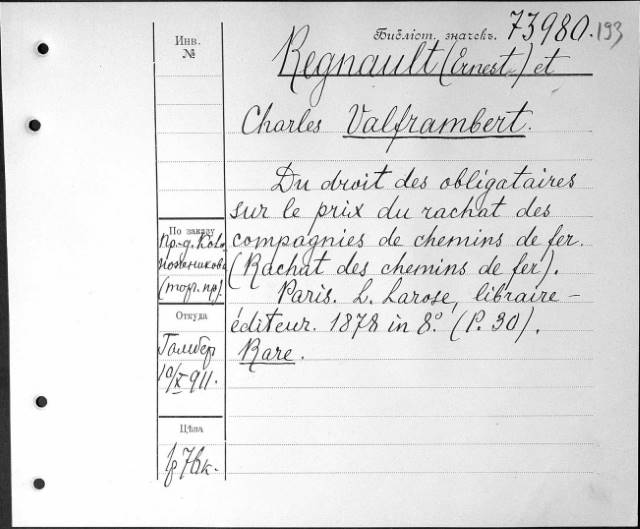 Инв.
№
Библіот. значекъ. 73980. 193
Regnault (Ernest) et
Charles Valframbert.
Du droit des obligataires
sur le prix du rachat des
compagnies de chemins de fer.
(Rachat des chemins de fer).
Paris. L. Larose, libraire-
éditeur. 1878 in 8º. (P. 30).
Rare.
По заказу
(торг. пр).
Откуда
10/X 911.
Цѣна